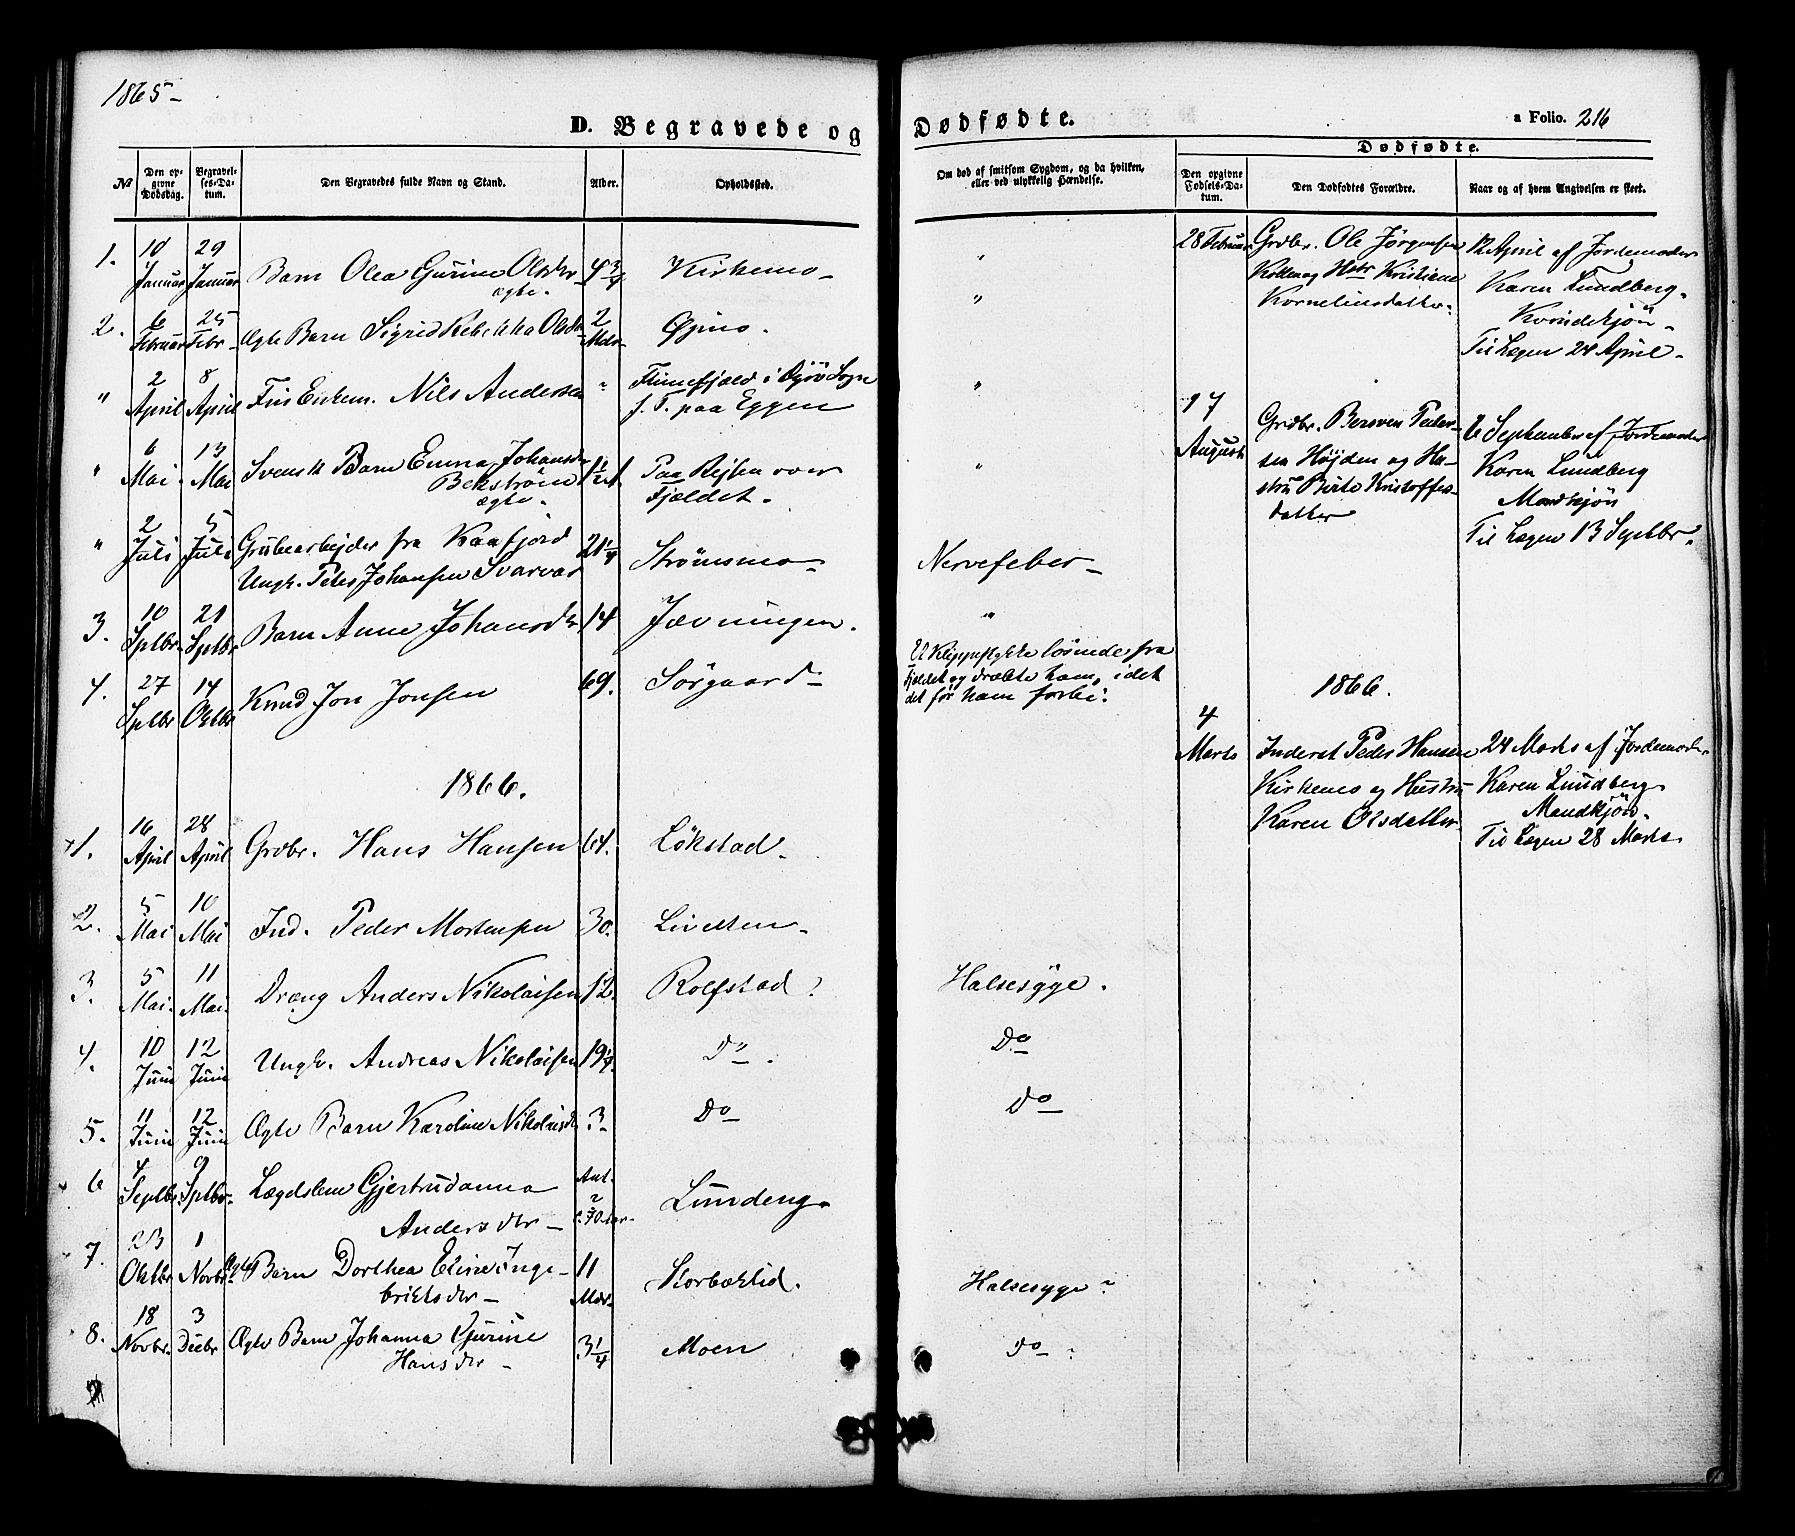 1865-
D. Begravede og
Dødfødte.
a Folio. 216
Dødfødte.
№
Den opgivne Dødsdag.
Begravelses-Datum.
Den Begravedes fulde Navn og Stand.
Alder.
Opholdssted.
Om død af smitsom Sygdom, og da hvilken, eller ved ulykkelig Hændelse.
Den opgivne Fødsels-Datum.
Den Dødfødtes Forældre.
Naar og af hvem Angivelsen er skeet.
1. 10 Januar 29 Januar Barn Olea Gurine Olsdtr ægte. 4 3/4 Kirkemo - "
2. 6 Februar 25 Febr - Ægte Barn Sigrid Rebekka Olsdtr 2 Mdr Øjmo. "
" 2 April 8 April Fin Enkem. Nils Andersen " Finnefjeld i Sogn
f. T. paa Eggen "
" 6 Mai. 13 Mai Svensk Barn Emma Johansdr
Bekström ægte. 1 1/2 Paa Rejsen over
Fjeldet. "
" 2 Juli 5 Juli Grubearbejder fra Kaafjord
Ungk. Peter Johansen Svarvar 21 1/4 Strømsmo - Nervefeber -
3. 10 Sptbr. 21 Sptbr Barn Anne Johansdr 14 Jævningen. "
4. 27 Sptbr 14 Oktbr Knud Jon Jonsen 69. Sörgaard - Et Klippestykke løsnede fra
Fjeldet og dræbte ham, idet
det før ham forbi.
1866.
1. 16 April 28 April Grdbr. Hans Hansen 64. Lökstad -
2. 5 Mai 10 Mai Ind. Peder Mortensen 30. Livelten -
3. 5 Mai. 11 Mai. Dræng Anders Nikolaisen 12. Rolfstad. Halsesyge.
4. 10 Juni 12 Juni Ungk. Andreas Nikolaisen 19 1/4. Do . Do
5. 11 Juni 12 Juni Ægte Barn Karoline Nikolaisdr 3 Do Do
6 4 Septbr 9 Sptbr. Lægdslem Gjertrudanna
Anders dtr - Ant. Lundeng.
7. 23 Oktbr 1 Novbr Ægte Barn Dorthea Eline Inge-
brikts dtr - 11 Mdr Storbæklid. Halsesyge
8. 18 Novbr. 3 Decbr Ægte Barn Johanna Gurine
Hans dtr - 3 1/4 Moen do
28 Februar Grdbr. Ole Jörgensen
Kolden og Hstr Kristiane
Kornelinsdatter. 12 April af Jordemoder
Karen Lundberg.
Kvindekjön -
Til Lægen 24 April -
17 August Grdbr. Bersven Peder-
sen Højden og Hu-
stru Birte Kristoffers-
datter 6 September af Jordemoder
Karen Lundberg
Mandkjön
Til Lægen 13 Septbr.
1866.
4 Marts Inderst Peder Hansen
Kirkemo og Hustru
Karen Olsdatter 24 Marts af Jordemoder
Karen Lundberg
Mandkjön.
Til Lægen 28 Marts